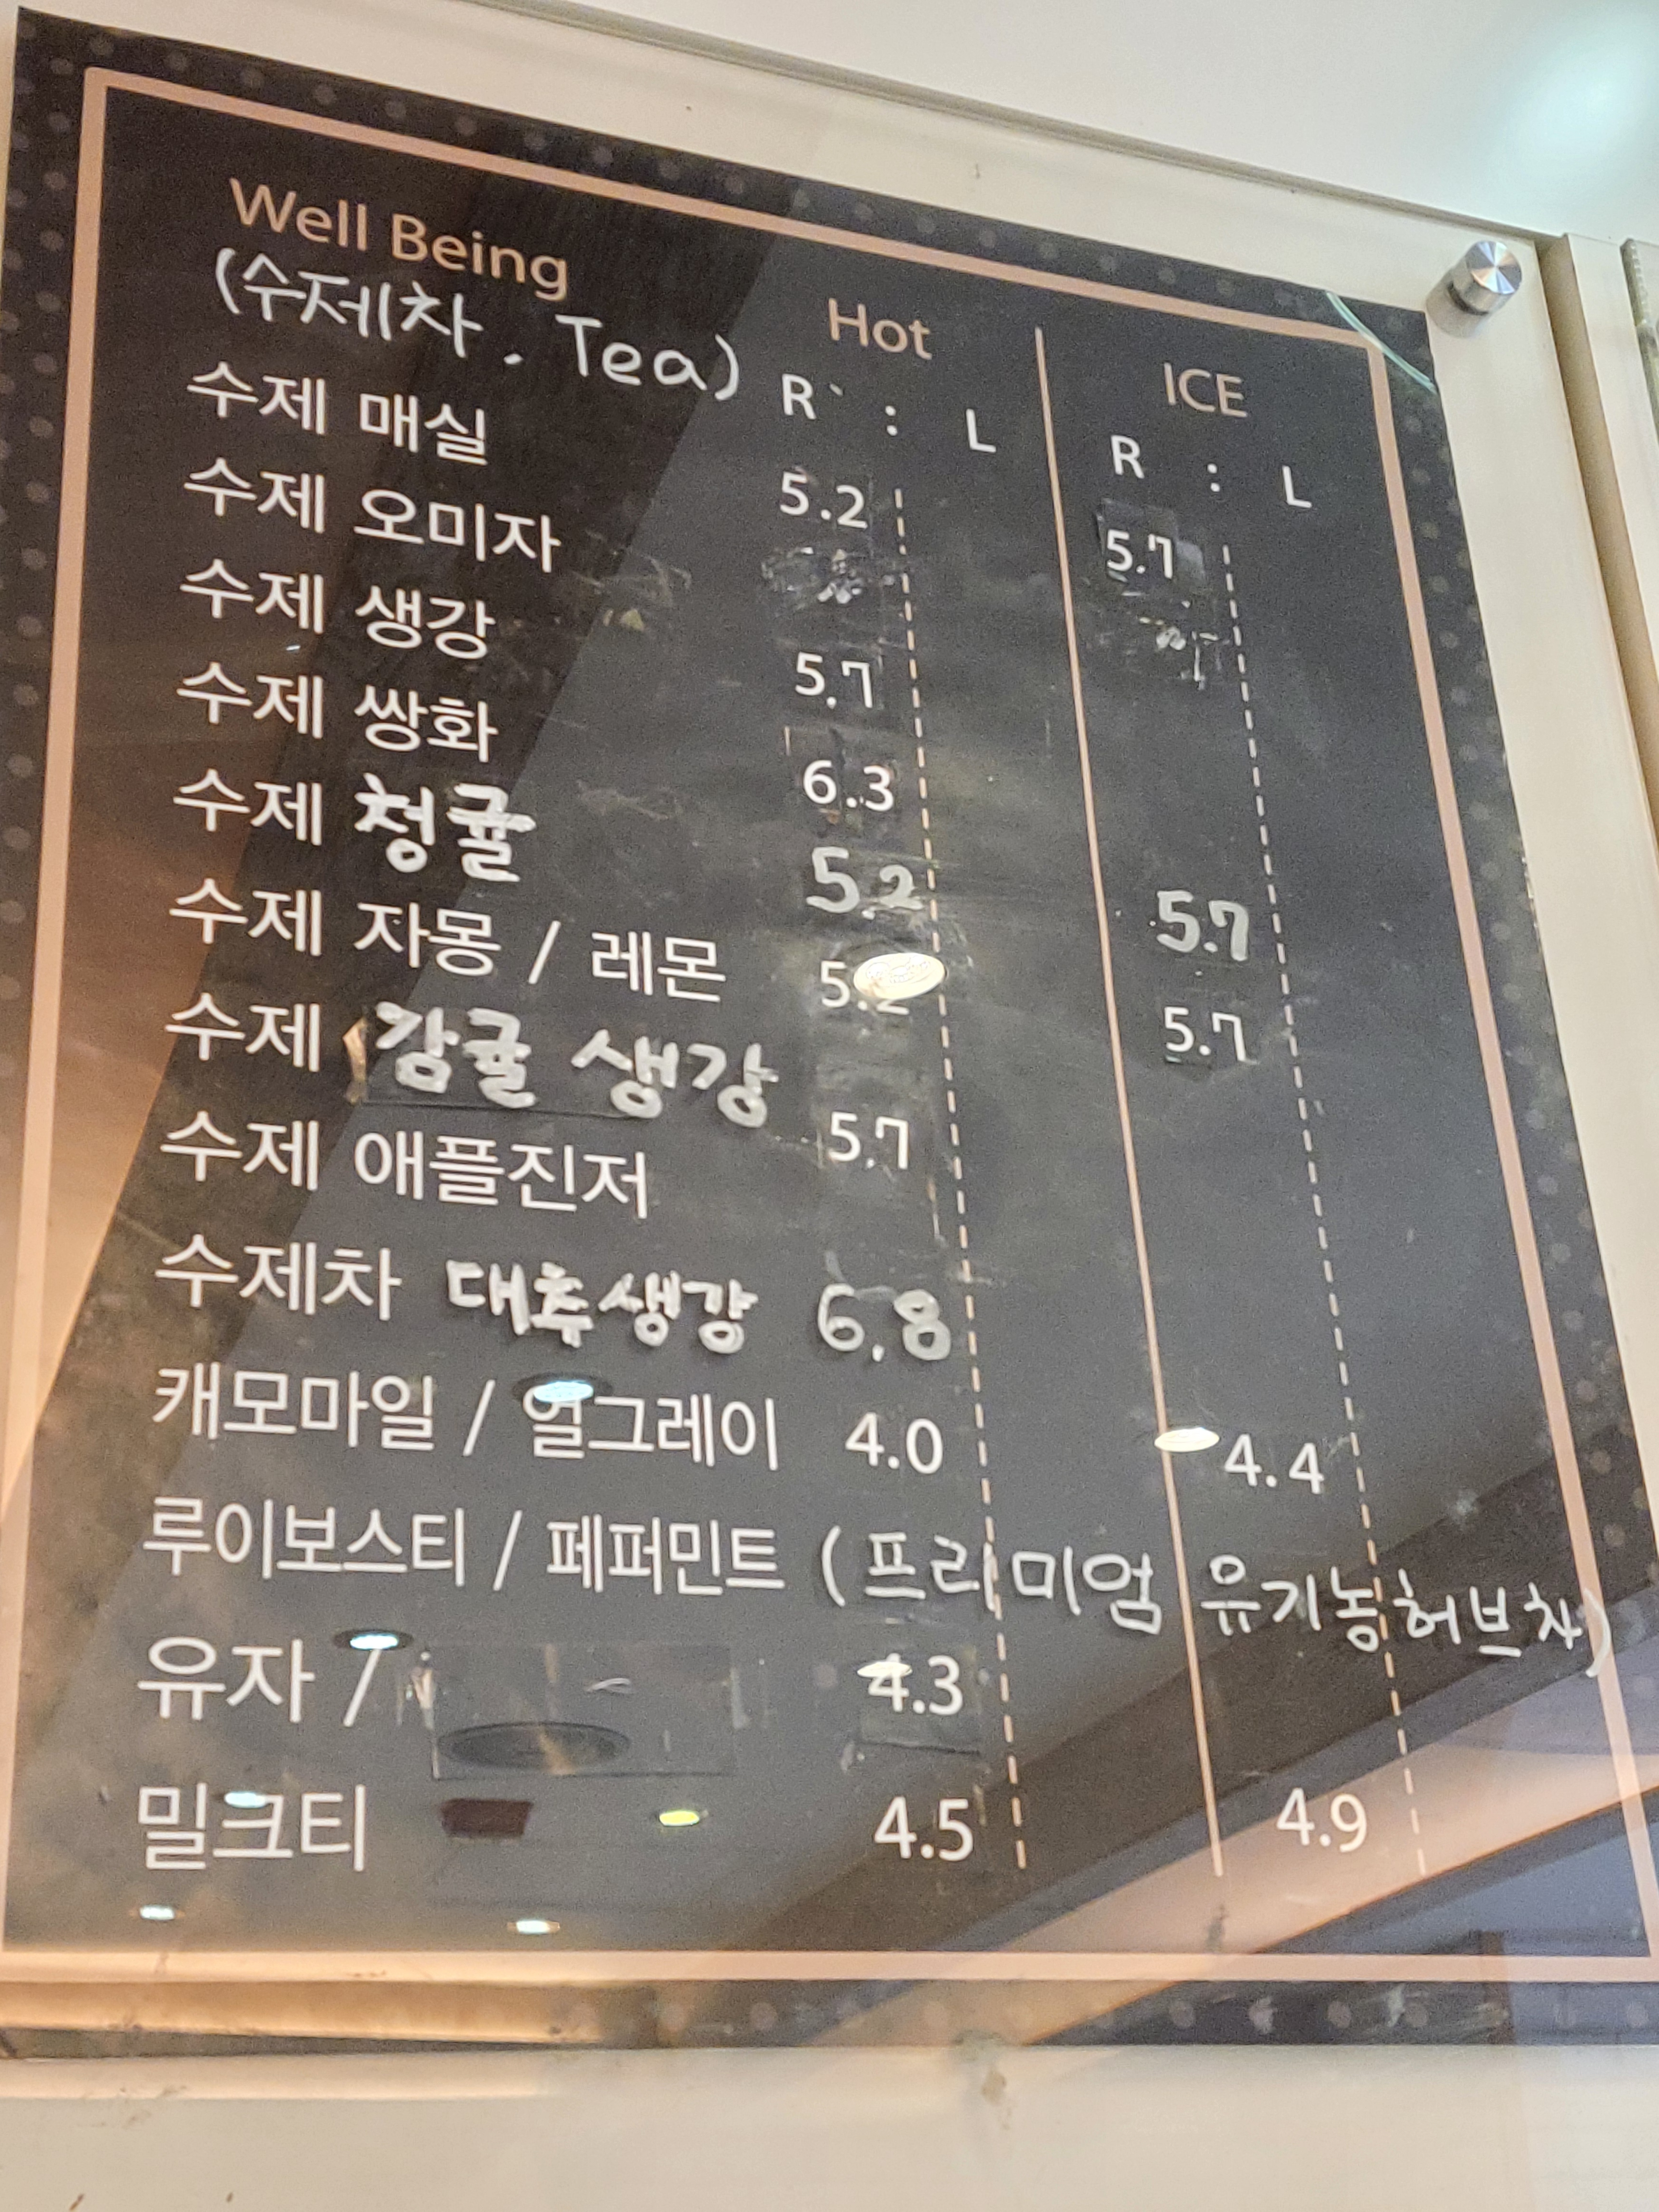 Well Being
(수제차. Tea)
Hot
ICE
R : L
R : L
수제 매실 5.2 5.7
수제 오미자
수제 생강 5.7
수제 쌍화 6.3
수제 청귤 5.2 5.7
수제 자몽 / 레몬 5.2 5.7
수제 감귤 생강 5.7
수제 애플진저
수제차 대추생강 6.8
캐모마일 / 얼그레이 4.0 4.4
루이보스티 / 페퍼민트 (프리미엄 유기농허브차)
유자 / 4.3
밀크티 4.5 4.9